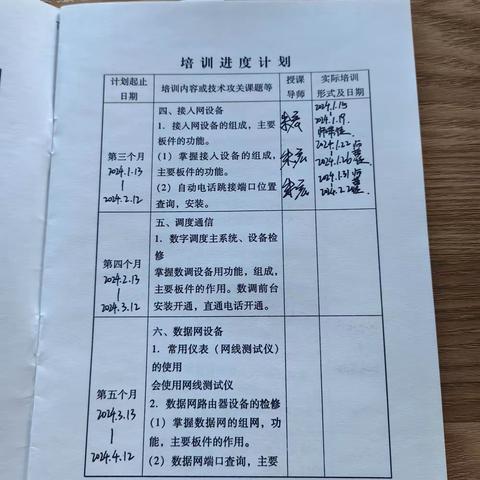 培训进度计划
计划起止
日期
培训内容或技术攻关课题等
授课
导师
实际培训
形式及日期
第三个月
2024.1.13
2024.2.12
四、接入网设备
1．接入网设备的组成，主要
板件的功能。
(1）掌握接入设备的组成，
主要板件的功能。
(2）自动电话跳接端口位置
查询，安装。
2024.1.15
2024.1.19.
2024.1.22
2024.1.26
2024.1.31
2024.2.2
第四个月
2024.2.13
2024.3.12
五、调度通信
1．数字调度主系统、设备检
修
掌握数调设备用功能，组成，
主要板件的作用。数调前台
安装开通，直通电话开通。
第五个月
2024.3.13
2024.4.12
六、数据网设备
1．常用仪表（网线测试仪）
的使用
会使用网线测试仪
2．数据网路由器设备的检修
(1）掌握数据网的组网，功
能，主要板件的作用。
(2）数据网端口查询，主要